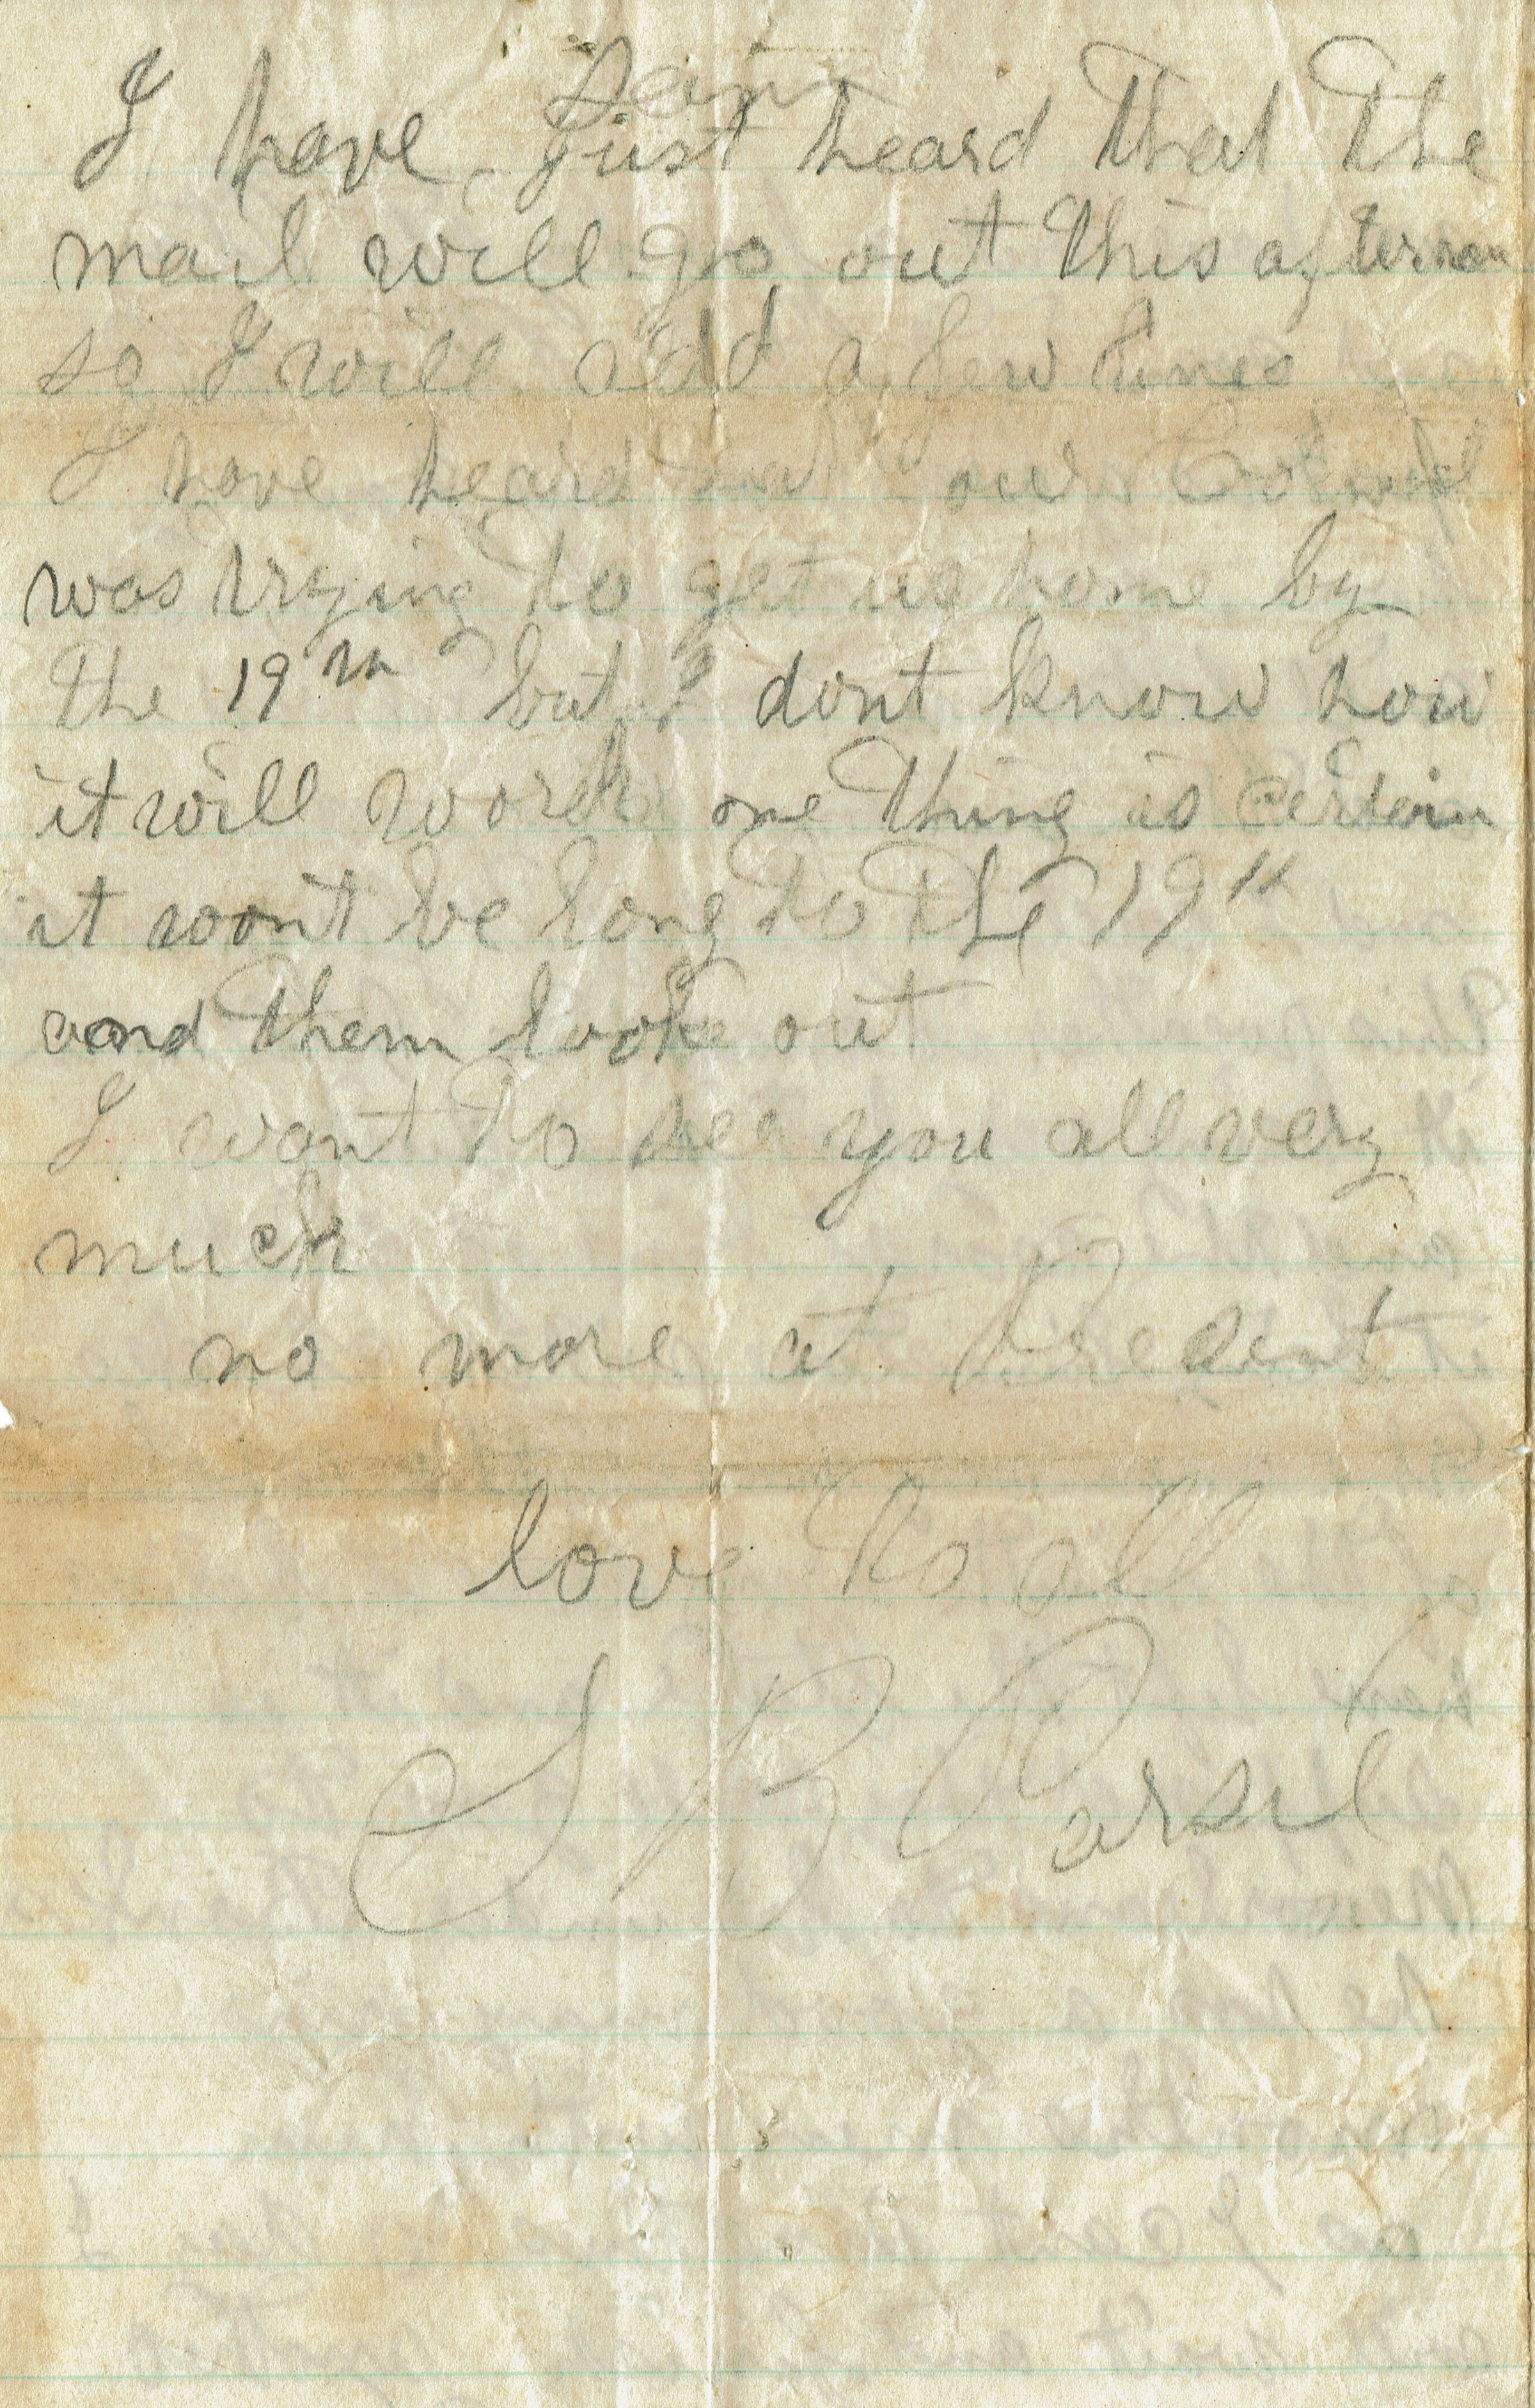 I have just heard that the
mail will go out this afternoon
so I will add a few lines
I have heard that our Colonel
was trying to get us home by
the 19th but I dont know how
it will work one thing is certain
it wont be long to the 19th
and them looke out
I want to see you all very
much
no more at Present
love to all
S B Parsil